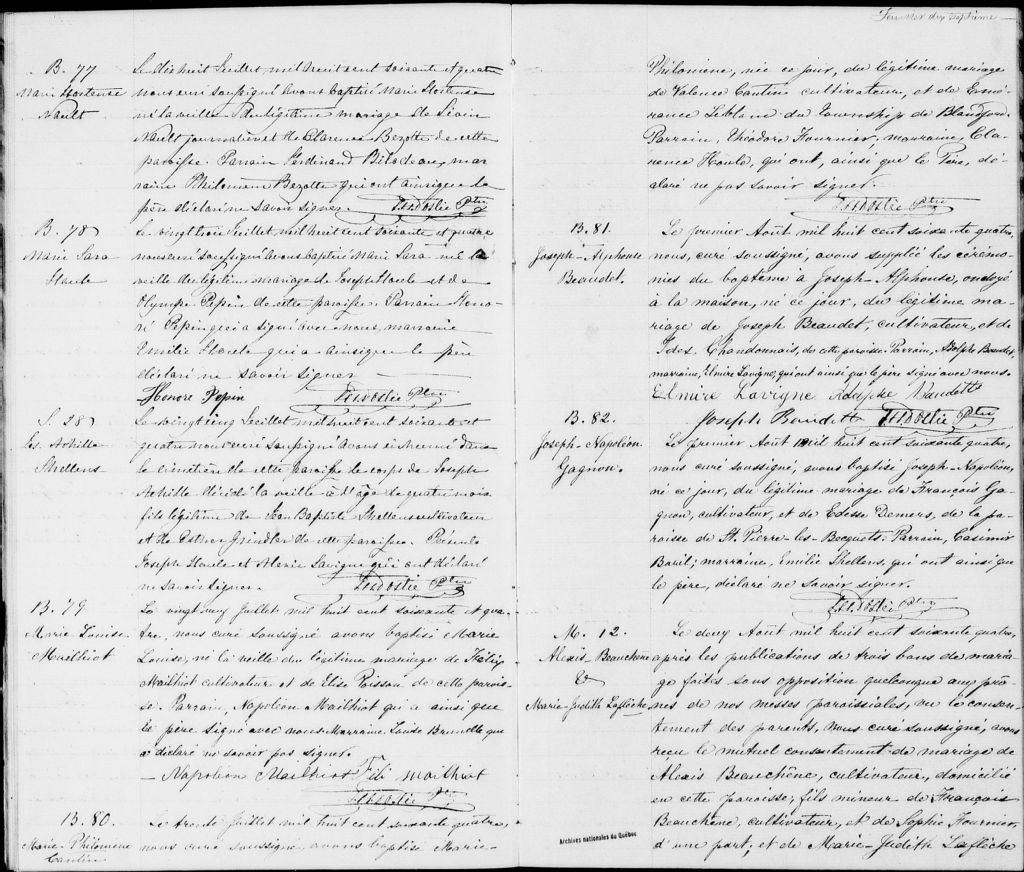 B. 77
Marie Hortense
Nault
Le dix huit Juillet mil huit cent soixante et quatre
nous curé soussigné avons baptisé Marie Hortense
né la veille du légitime mariage de
Nault journalier et de Clarence Bezotte de cette
paroisse. Parrain Ferdinand Bilodeau, mar
raine Philomene Bezotte qui ont ainsi que le
père déclaré ne savoir signer.
B. 78
Marie Sara
Houle
Le vingt trois Juillet, mil huit cent soixante et quatre
nous curé soussigné avons baptisé Marie Sara né la
veille du légitime mariage de Joseph Houle et de
Olympe Pepin de cette paroisse. Parrain Hono
ré Pepin qui a signé avec nous, marraine
Emilie Houle qui a ainsi que le père
déclaré ne savoir signer
Honore Pepin
S. 28
Jos. Achille
Shellens
Le vingt cinq Juillet mil huit cent soixante et
quatre nous curé soussigné avons inhumé dans
le cimetière de cette paroisse le corps de Joseph
Achille décédé la veille à l'âge de quatre mois
fils légitime de Jean Baptiste Shellens cultivateur
et de Esther Grindler de cette paroisse. Présents
Joseph Houle et Alexis Lavigne qui ont déclaré
ne savoir signer.
B. 79
Marie Louise
Mailhiot
Le vingt neuf Juillet mil huit cent soixante et qua-
tre, nous curé soussigné avons baptisé Marie
Louise, né la veille du légitime mariage de Félix
Mailhiot cultivateur et de Elise Poisson de cette parois-
se. Parrain, Napoléon Mailhiot qui a ainsi que
le père signé avec nous Marraine Louise Brunelle qui
a déclaré ne savoir pas signer.
Napoléon Mailhiot Féli mailhiot
B. 80.
Marie-Philomène
Cantin
Le trente Juillet mil huit cent soixante quatre,
nous curé soussigné, avons baptisé Marie-
Feuillet dix septième
Philomène, née ce jour, du légitime mariage
de Valence Cantin cultivateur, et de Emé-
rance Leblanc du township de Blandford.
Parrain, Théodore Fournier, marraine, Cla-
rence Houle, qui ont, ainsi que le Père, dé-
claré ne pas savoir signer.
B. 81.
Joseph-Alphonse
Beaudet.
Le premier Août mil huit cent soixante quatre,
nous, curé soussigné, avons supplée les cérémo-
nies du baptême à Joseph-Alphonse, ondoyé
à la maison, né ce jour, du légitime ma-
riage de Joseph Beaudet, cultivateur, et de
Chandonnais, de cette paroisse Parrain, Adolphe Beaudet
marraine, Elmire Lavigne, qui ont ainsi que le père signé avec nous.
Elmire Lavigne Adolphe Baudett
Joseph Baudett
B. 82.
Joseph-Napoléon
Gagnon.
Le premier Août mil huit cent soixante quatre,
nous curé soussigné, avons baptisé Joseph-Napoléon,
né ce jour, du légitime mariage de François Ga-
gnon, cultivateur, et de Edesse Demers, de la pa-
roisse de St. Pierre-les-Becquets. Parrain, Casimir
Baril; marraine, Emilie Shellens, qui ont ainsi que
le père, déclaré ne savoir signer.
M. 12.
Alexis Beauchêne
&
Marie-Judith Laflèche
Le deux Août mil huit cent soixante quatre,
après les publications de trois bans de maria-
ge faites sous opposition quelconque aux prô-
nes de nos messes paroissiales, vu le consen-
tement des parents, Nous curé soussigné, avons
reçu le mutuel consentement de mariage de
Alexis Beauchêne, cultivateur, domicilié
en cette paroisse, fils mineur de François
Beauchêne, cultivateur, et de Sophie Fournier,
d'une part; et de Marie-Judith Laflèche
Archives nationales du Québec